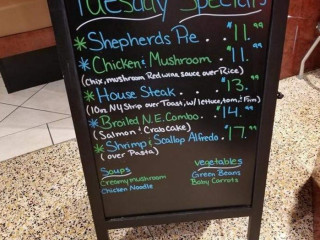 Tuesday Specials
*Shepherds Pie. $11.99
*Chicken & Mushroom $11.99
(chix, mushroom Red wine sauce over Rice)
*House Steak. $13.99
(10oz NY Strip over Toast, w/ lettuce, tom, & Fim)
*Broiled N.E. Combo. $14.99
(Salmon & Crabcake)
*Shrimp & Scallop Alfredo. $17.99
(over Pasta)
Soups
Creamy mushroom
Chicken Noodle
Vegetables
Green Beans
Baby Carrots